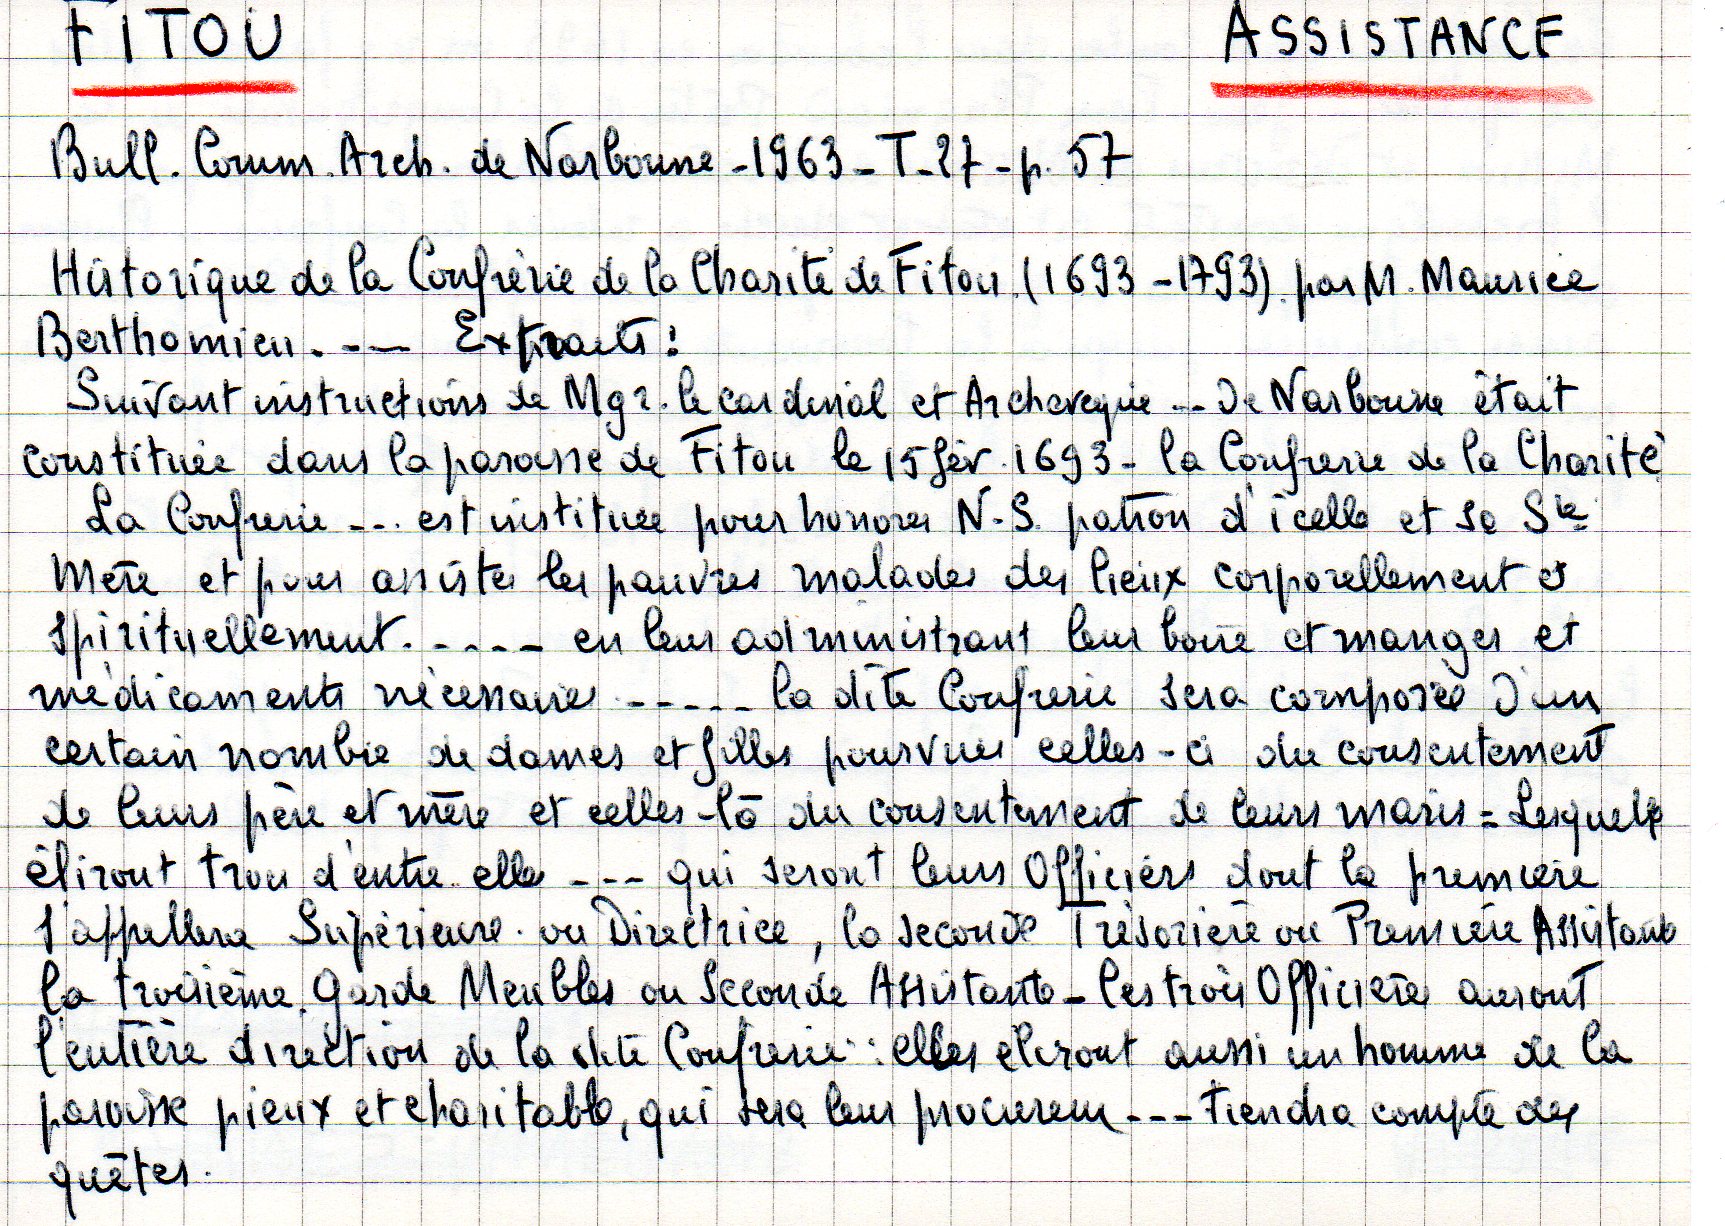 FITOU ASSISTANCE
Bull. Comm. Arch. de Narbonne - 1963 - T. 27 - p. 57
Historique de la Confrérie de la Charité de Fitou (1693 - 1793). par M. Maurice
Berthomieu. --- Extraits :
Suivant instructions de Mgr. le cardinal et Archeveque --- De Narbonne était
constituée dans la paroisse de Fitou le 15 fév. 1693 - la Confrerie de la Charité
La Confrerie --- est instituée pour honorer N.S. patron d'icelle et sa Ste
Mère et pour assister les pauvres malades des lieux corporellement et
spirituellement. ---- en leur administrant leur boire et manger et
médicaments nécessaires ----- la dite Confrerie sera composée d'un
certain nombre de dames et filles pourvues celles-ci du consentement
de leurs père et mère et celles-là du consentement de leurs maris = Lesquelles
éliront trois d'entre elles --- qui seront leurs Officiers dont la première
s'appellera Supérieure ou Directrice, la seconde Trésorière ou Première Assistante
la troisième Garde Meubles ou Seconde Assistante - les trois Officières auront
l'entière direction de la dite Confrerie : elles éliront aussi un homme de la
paroisse pieux et charitable, qui sera leur procureur --- tiendra compte des
quêtes.